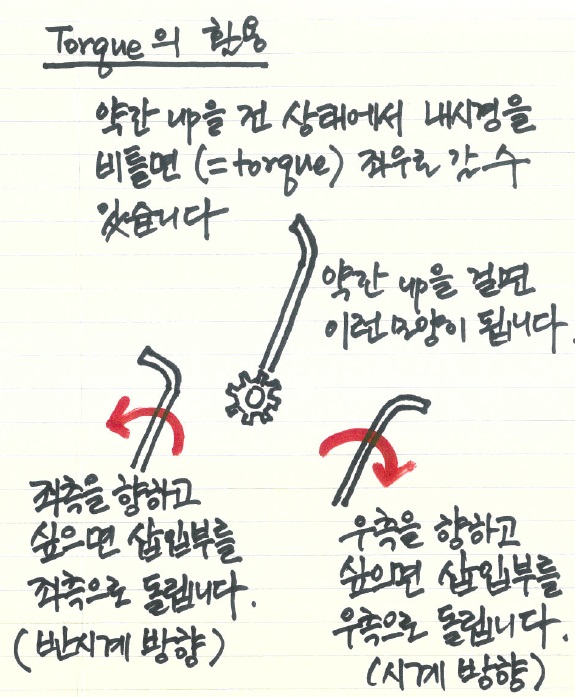 Torque의 활용
약간 up을 건 상태에서 내시경을
비틀면 (=torque) 좌우로 갈 수
있습니다
약간 up을 걸면
이런 모양이 됩니다.
좌측을 향하고
싶으면 삽입부를
좌측으로 돌립니다.
(반시계 방향)
우측을 향하고
싶으면 삽입부를
우측으로 돌립니다.
(시계 방향)